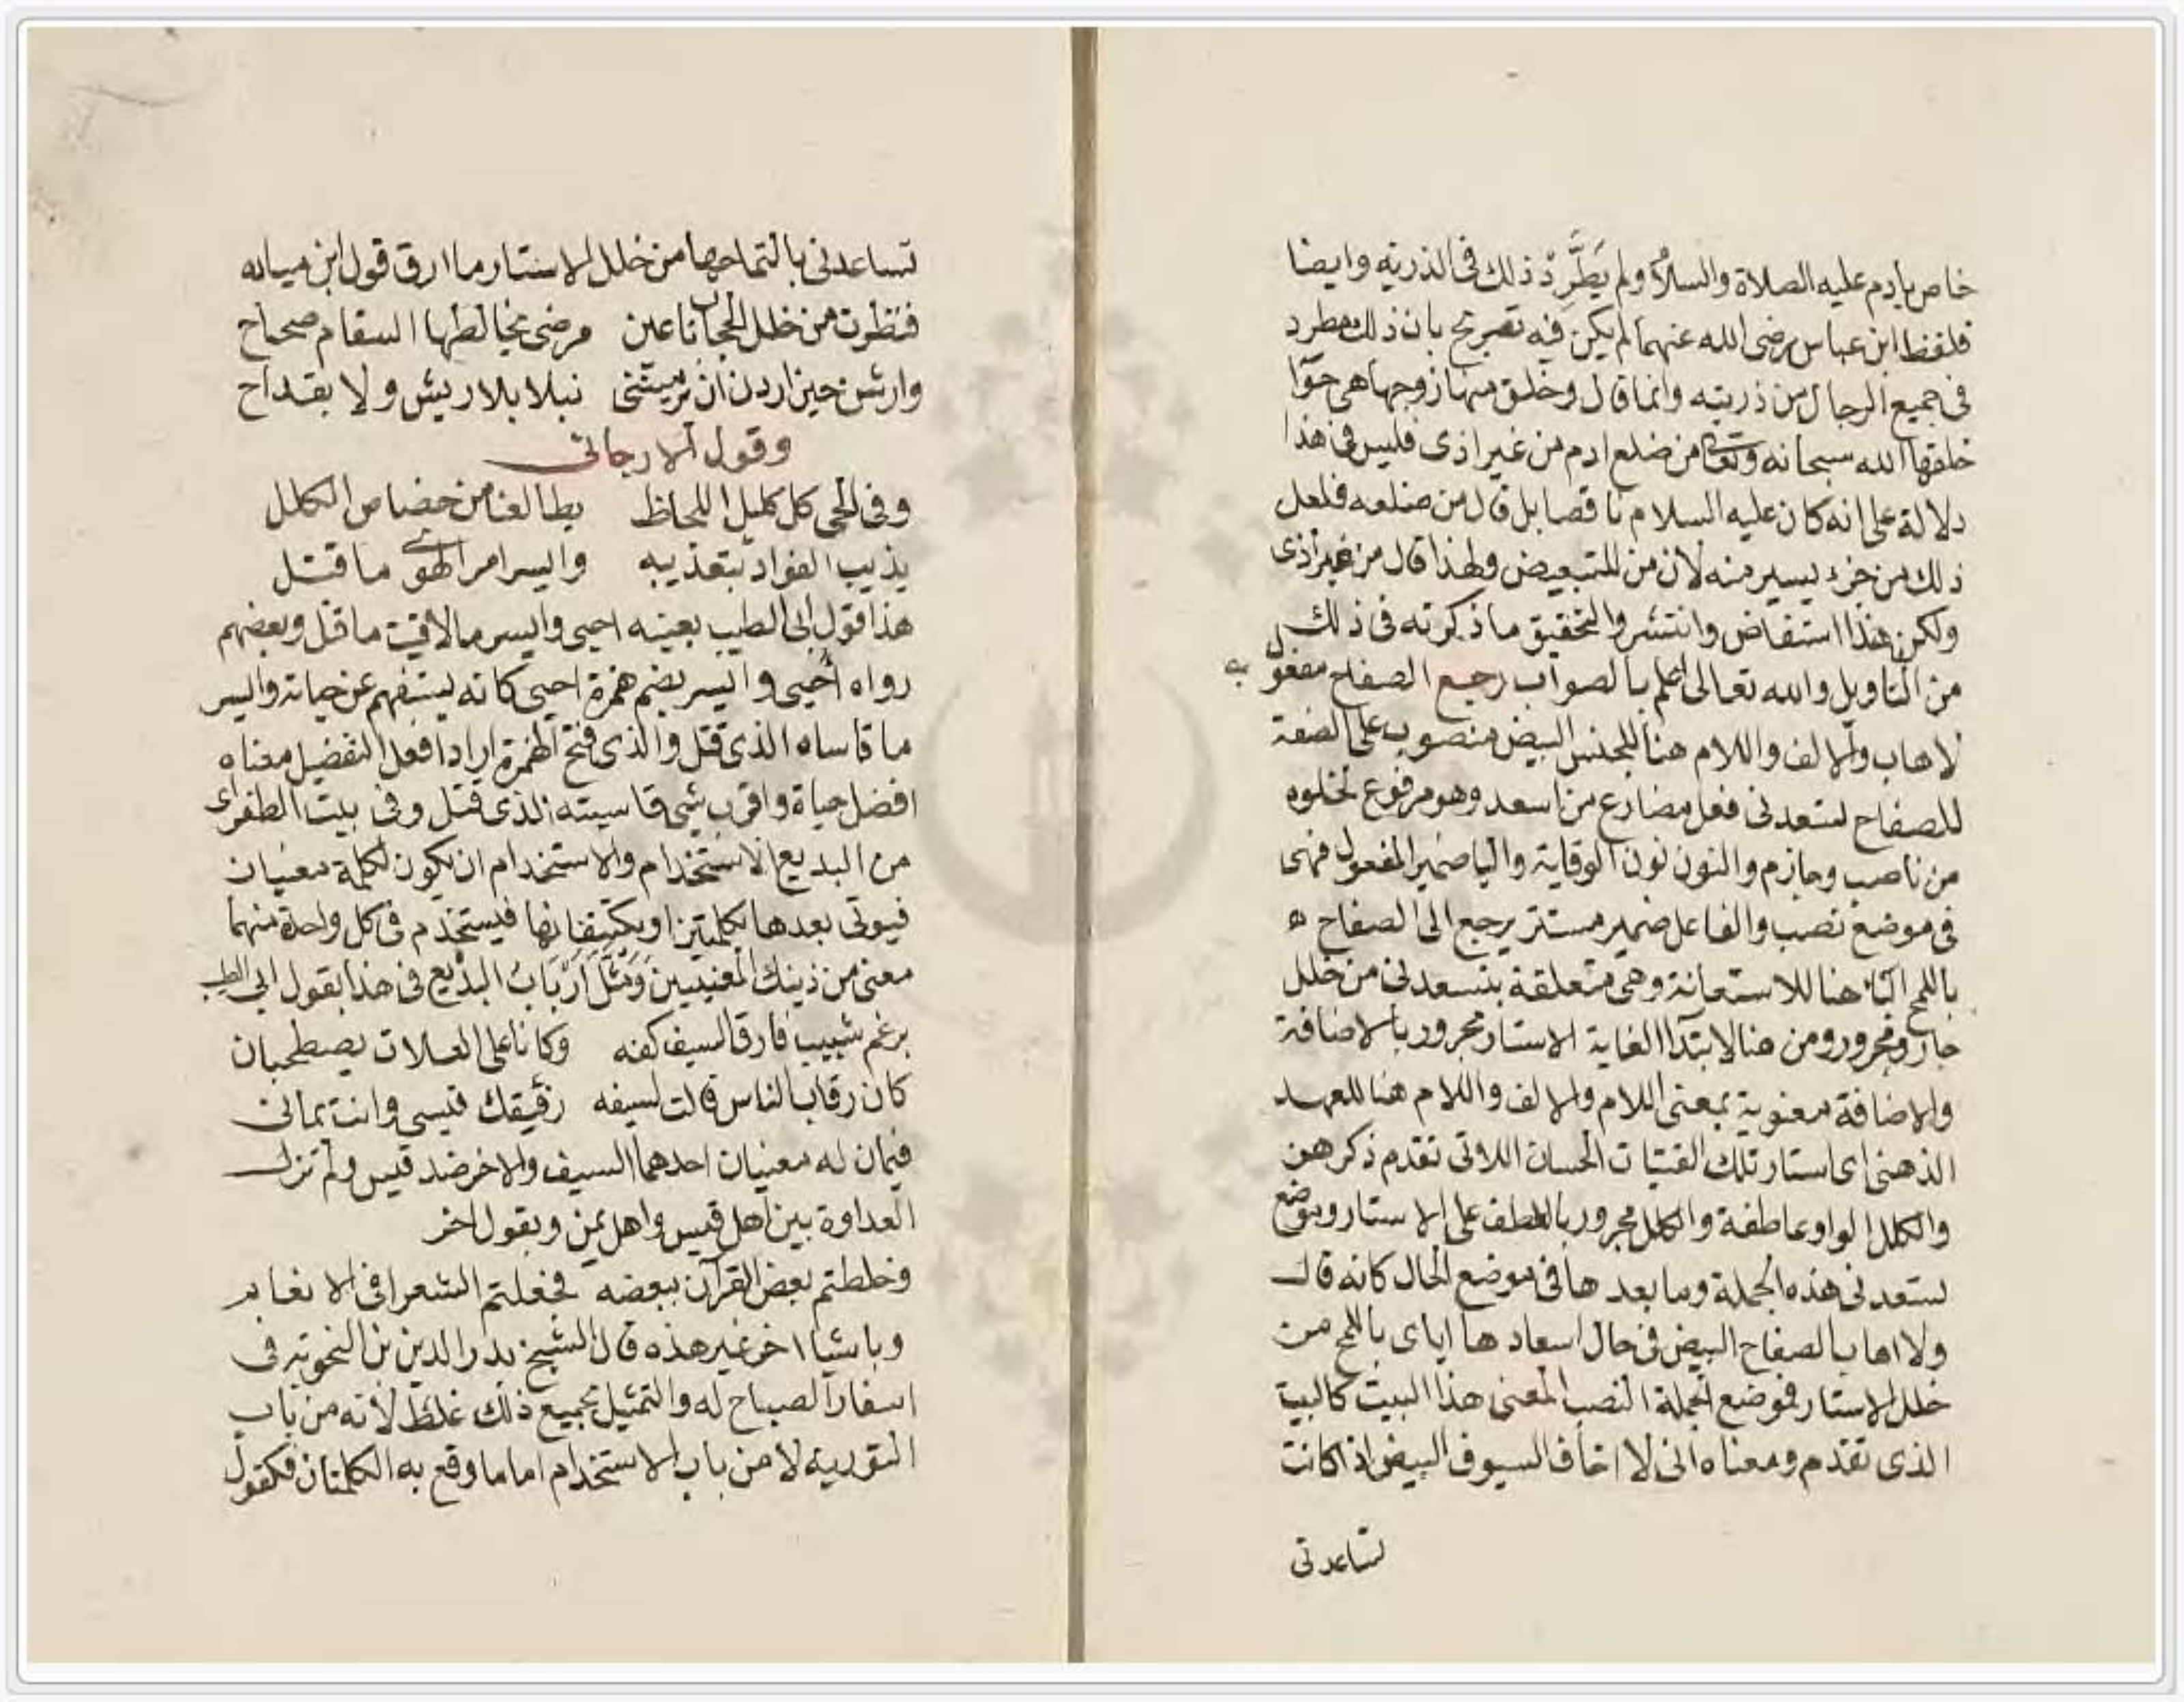 خاص بادم عليه الصلاة والسلام ولم يَطَّرِدْ ذلك في الذرية وايضا
فلفظ ابن عباس رضى الله عنهما لم يكن فيه تصريح بان ذلك مطرد
في جميع الرجال من ذريته وانما قال وخلق منها زوجها هي حوّا
خلقها الله سبحانه وتعالى من ضلع ادم من غير اذى فليس في هذا
دلالة على انه كان عليه السلام ناقصا بل قال من ضلعه فلعل
ذلك من جزء يسير منه لان من للتبعيض ولهذا قال من غير اذى
ولكن هذا استفاض وانتشر والتحقيق ما ذكرته في ذلك
من التاويل والله تعالى اعلم بالصواب رجع الصفاح مفعول به
لاهاب والالف واللام هنا للجنس البيض منصوب على الصفة
للصفاح تسعدنى فعل مضارع من اسعد وهو مرفوع لخلوه
من ناصب وجازم والنون نون الوقاية واليا ضمير المفعول فهى
في موضع نصب والفاعل ضمير مستتر يرجع الى الصفاح ه
باللمح البا هنا للاستعانة وهى متعلقة بتسعدنى من خلل
جار ومجرور ومن هنا لابتدآ الغاية الاستار مجرور بالاضافة
والاضافة معنوية بمعنى اللام والالف واللام هنا للعهد
الذهنى اى استار تلك الفتيات الحسان اللاتى تقدم ذكرهن
والكلل الواو عاطفة والكلل مجرور بالعطف على الاستار وموضع
تسعدنى هذه الجملة وما بعدها في موضع الحال كانه قال
ولا اهاب الصفاح البيض في حال اسعادها اياى باللمح من
خلل الاستار فموضع الجملة النصب المعنى هذا البيت كالبيت
الذى تقدم ومعناه انى لا اخاف السيوف البيض اذا كانت
تساعدنى
تساعدنى بالتماحها من خلل الاستار وما ارق قول ابن ميادة
فنظرت من خلل الحجاب باعين مرضى مخالطها السقام صحاح
وارشن حين اردن ان يرميننى نبلا بلا ريش ولا بقداح
وقول الارجانى
وفي الحى كل كليل اللحاظ يطالعنا من خصاص الكلل
يذيب الفواد بتعذيبه وايسر امر الهوى ما قتل
هذا قول ابى الطيب بعينه احيى وايسر ما لاقيت ما قتل وبعضهم
رواه أُحيى وايسر بضم همزة احيى كانه يستفهم عن حياته وايسر
ما قاساه الذى قتل والذى فتح الهمزة اراد افعل التفضيل معناه
افضل حياة واقرب شى قاسيته الذى قتل وفي بيت الطغراى
من البديع الاستخدام والاستخدام ان يكون لكلمة معنيان
فيوتى بعدها بكلمتين او يكتنفانها فيستخدم في كل واحدة منهما
معنى من ذينك المعنيين وَمَثَّلَ أَرْبَابُ البديع في هذا بقول ابى الطيب
برغم شبيب فارق السيف كفه وكانا على العلات يصطحبان
كان رقاب الناس قالت لسيفه رفيقك قيسى وانت يمانى
فيمان له معنيان احدهما السيف والاخر ضد قيس ولم تزل
العداوة بين اهل قيس واهل يمن وبقول اخر
وخلطتم بعض القرآن ببعضه فجعلتم الشعرا في الانعام
وباشيا اخر غير هذه قال الشيخ بدر الدين بن النحوية في
اسفار الصباح له والتمثيل بجميع ذلك غلط لانه من باب
التورية لا من باب الاستخدام اما ما وقع به الكلمتان فكقول